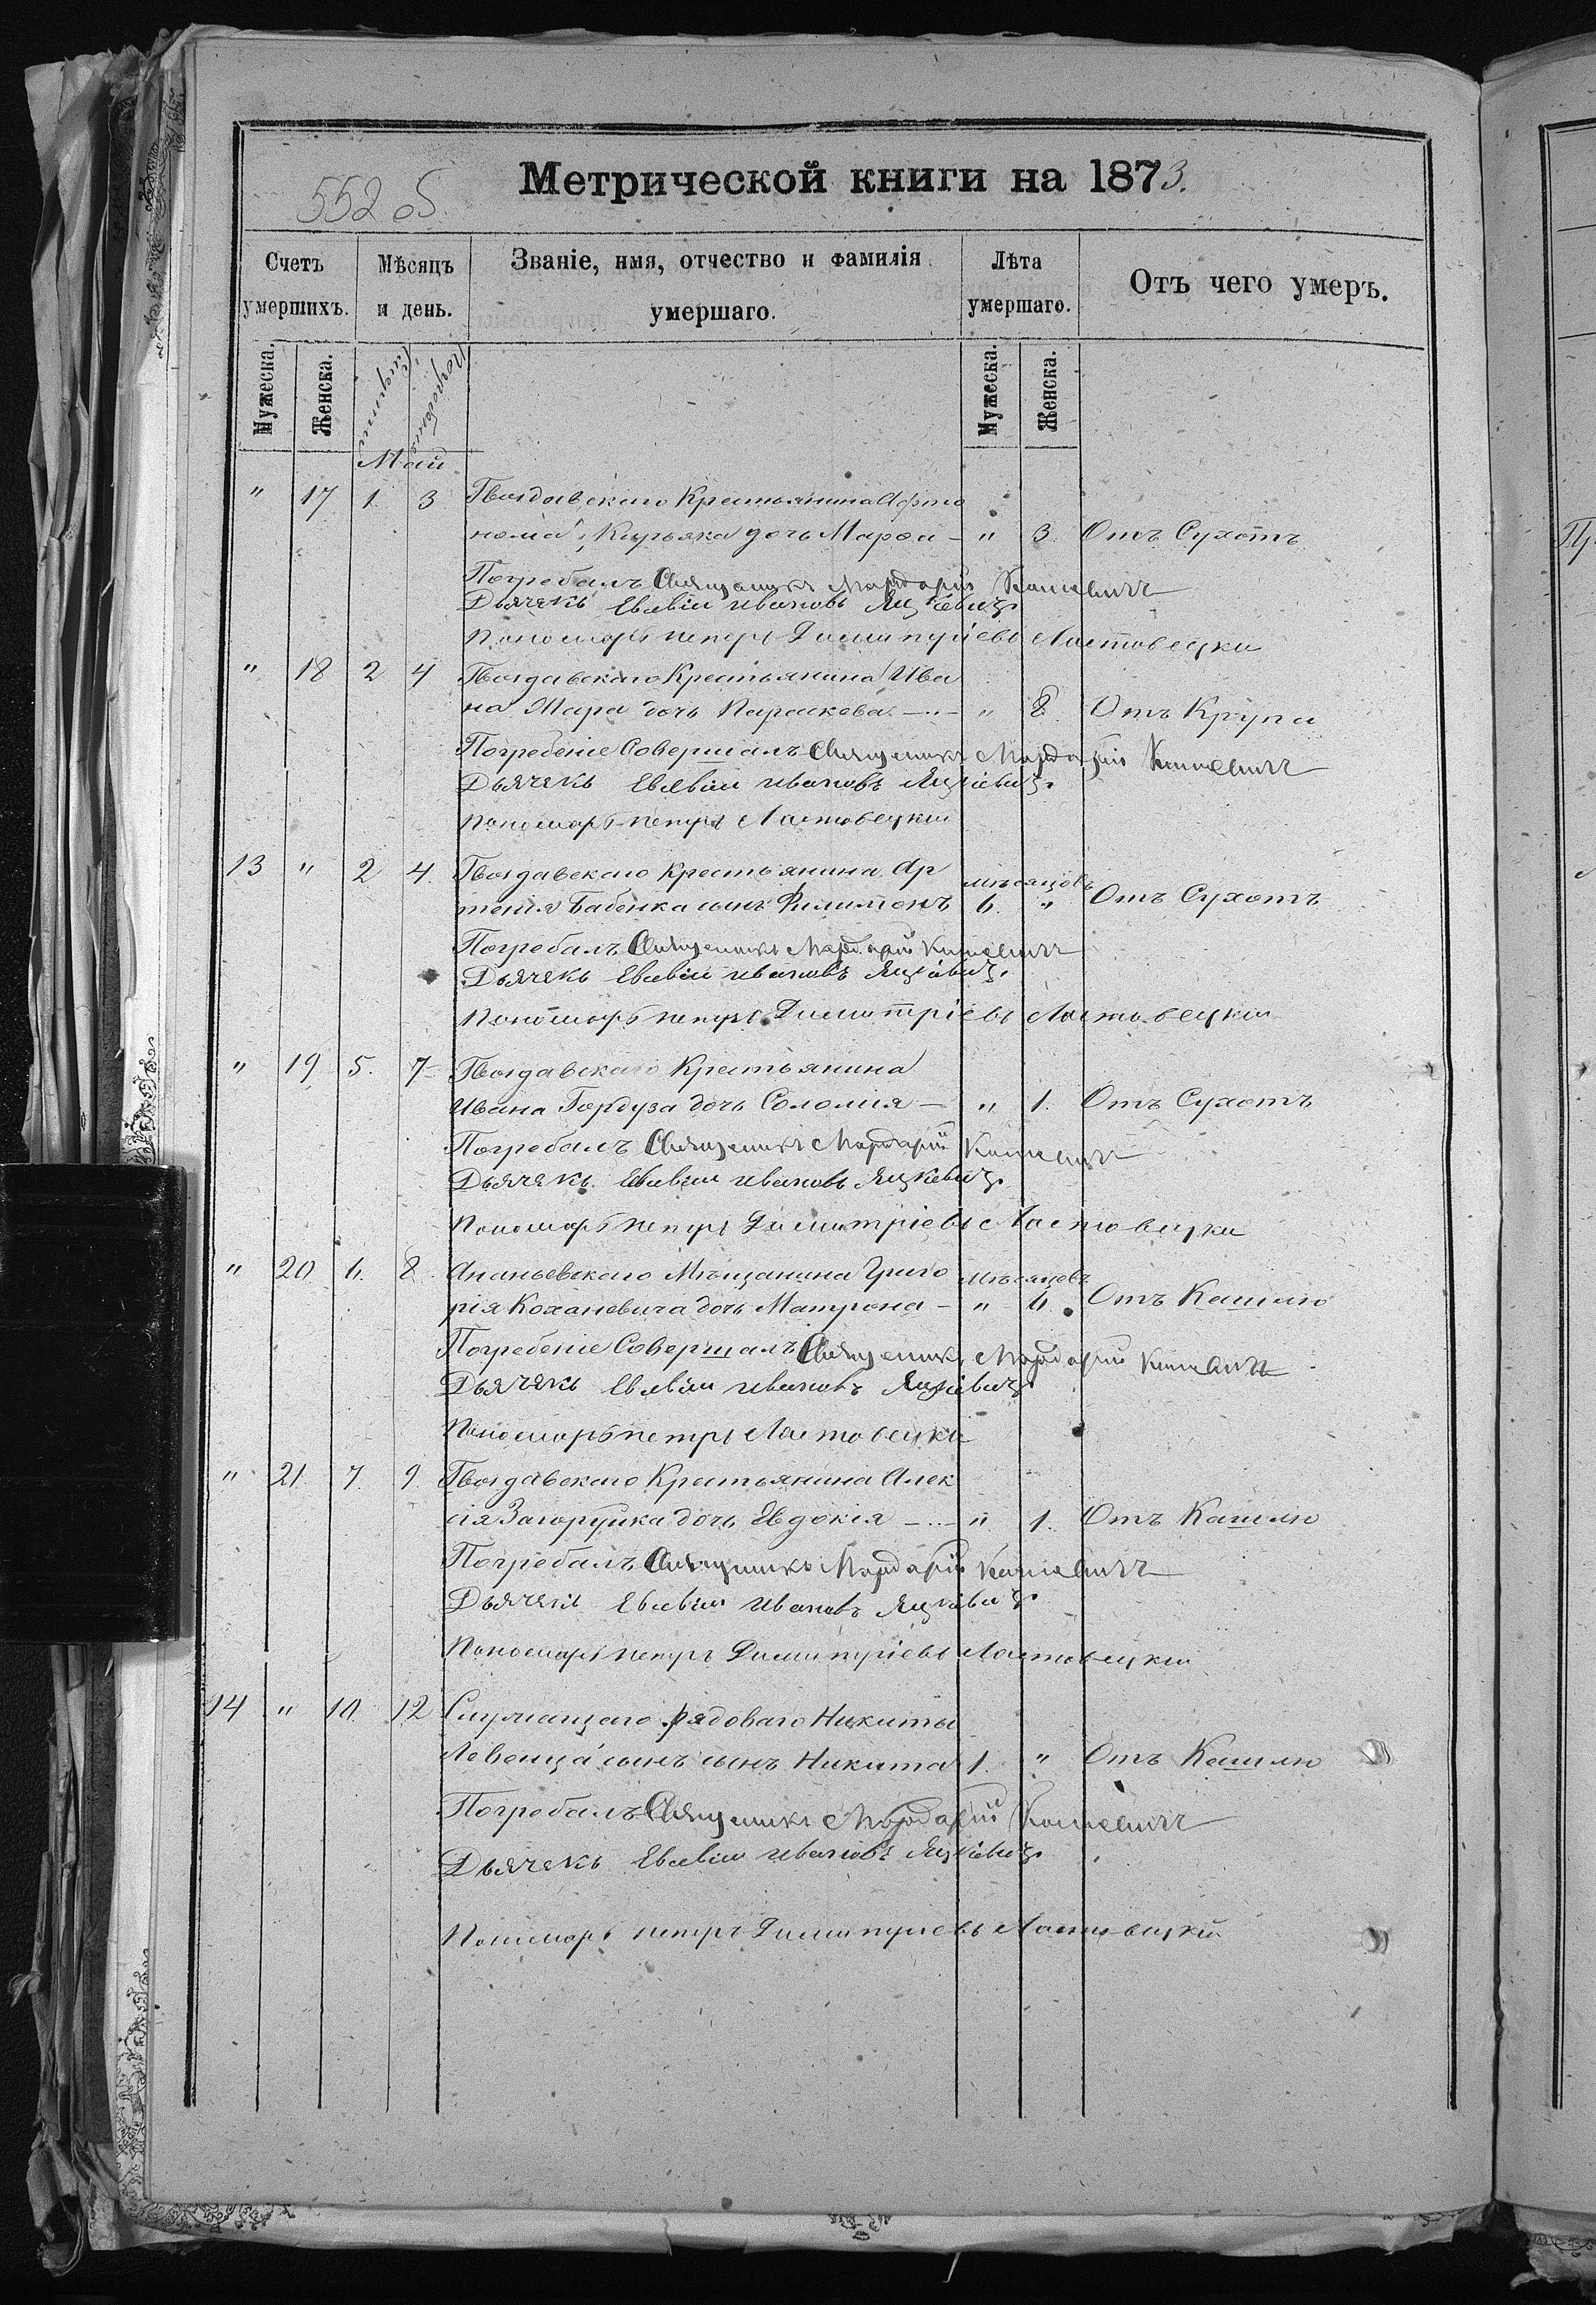 552 об.
Метрической книги на 1873.
Счетъ умершихъ.
Мѣсяцъ и день.
Званіе, имя, отчество и фамилія умершаго.
Лѣта умершаго.
Отъ чего умеръ.
Мужеска. Женска. Смерти Погребенія Мужеска. Женска.
Май
" 17 1. 3 Гвоздавскаго Крестьянина Афто
нома Кирьяка дочь Марѳа - " 3. Отъ Сухотъ
Погребалъ Священникъ Мардарій
Дьячекъ Евсевій Ивановъ Яцкевичъ
Пономарь петръ Димитріевъ Ластовецкій
" 18 2 4 Гвоздавскаго Крестьянина Ива
на Мара дочь Параскева - " 8. Отъ Крупа
Погребеніе Совершалъ Священникъ Мардарій
Дьячекъ Евсевій Ивановъ Яцкевичъ
Пономарь петръ Ластовецкій
13 " 2 4. Гвоздавскаго Крестьянина Ар
темія Бабенка сынъ Филимонъ мѣсяцовъ 6. " Отъ Сухотъ
Погребалъ Священникъ Мардарій
Дьячекъ Евсевій Ивановъ Яцкевичъ
Пономарь петръ Димитріевъ Ластовецкій
" 19 5. 7 Гвоздавскаго Крестьянина
Ивана Гордуза дочь Соломія - " 1. Отъ Сухотъ
Погребалъ Священникъ Мардарій
Дьячекъ Евсевій Ивановъ Яцкевичъ
Пономарь петръ Димитріевъ Ластовецкій
" 20 6. 8. Ананьевскаго Мѣщанина Григо
рія Кохановича дочь Матрона - мѣсяцовъ " 6. Отъ Кашлю
Погребеніе Совершалъ Священникъ Мардарій
Дьячекъ Евсевій Ивановъ Яцкевичъ
Пономарь петръ Ластовецкій
" 21. 7. 9. Гвоздавскаго Крестьянина Алек
сія Загоруйка дочь Евдокія - " 1. Отъ Кашлю
Погребалъ Священникъ Мардарій
Дьячекъ Евсевій Ивановъ Яцкевичъ
Пономарь петръ Димитріевъ Ластовецкій
14 " 10. 12 Служащаго рядоваго Никиты
Левенца сынъ сынъ Никита 1. " Отъ Кашлю
Погребалъ Священникъ Мардарій
Дьячекъ Евсевій Ивановъ Яцкевичъ
Пономарь петръ Димитріевъ Ластовецкій